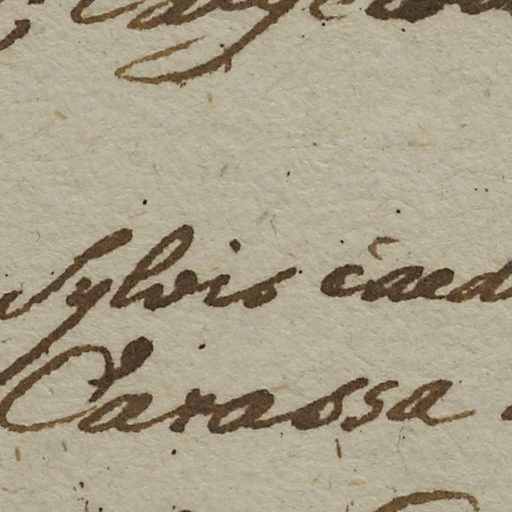 Sylvis caed
Carassa